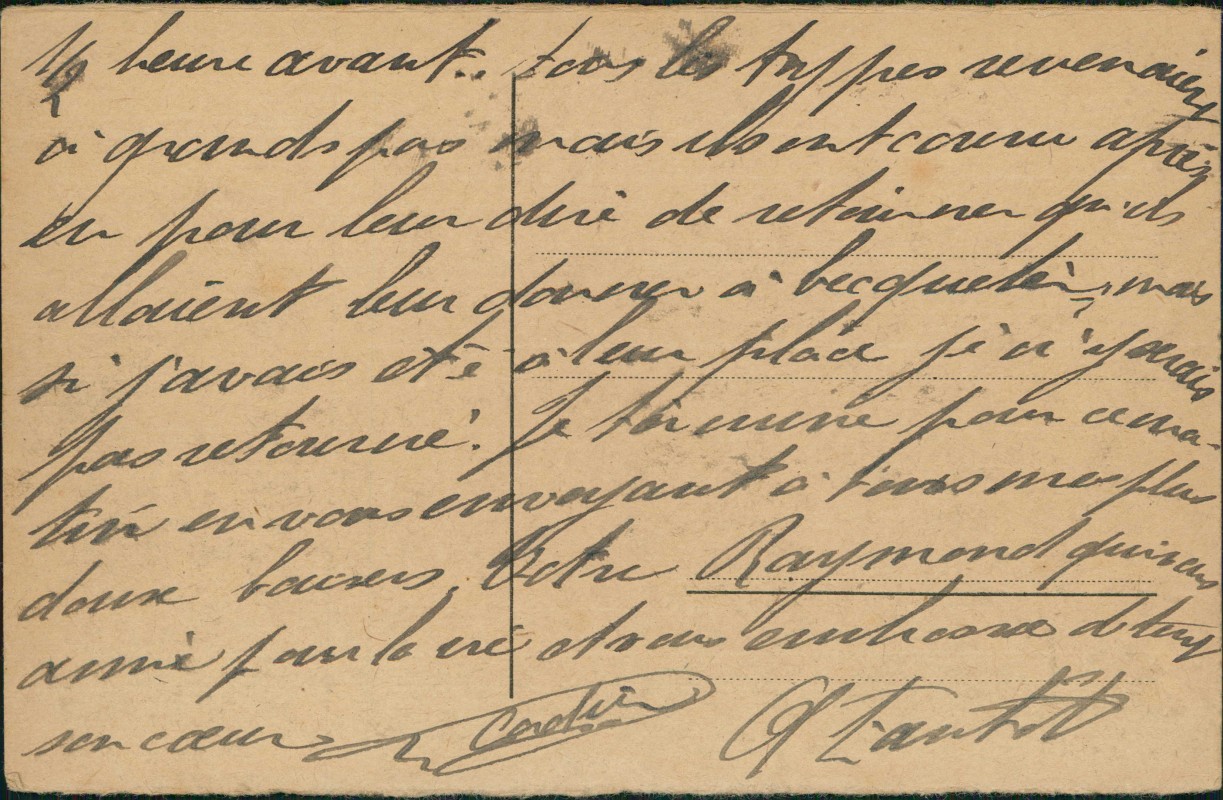 1/2 heure avant. tous les tappes revenaient
à grands pas mais ils ont couru après
eu pour leur dire de retourner qu'ils
allaient leur donner à becqueter, mais
si j'avais été à leur place je n'y aurais
pas retourné. Je termine pour ce ma-
tin en vous envoyant à tous mes plus
doux baisers. Votre Raymond qui vous
aime pour la vie et vous embrasse de tout
son cœur.
A Tantôt